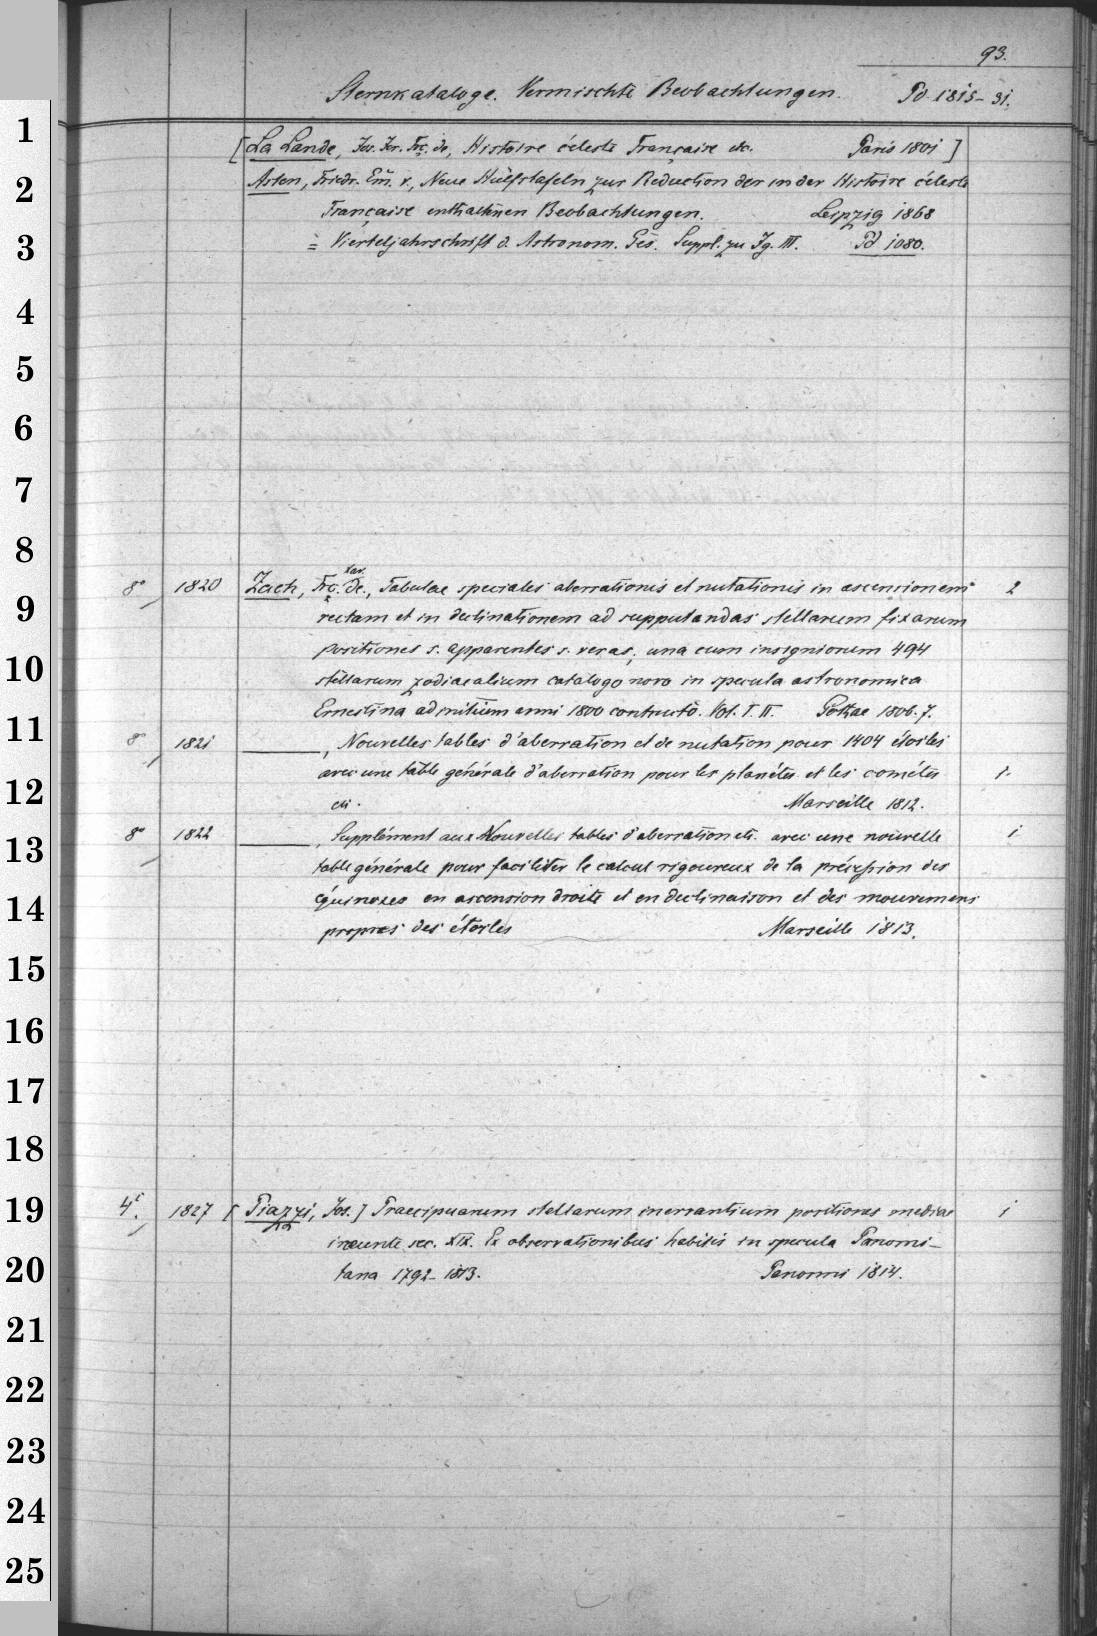 93.
Sternkataloge. Vermischte Beobachtungen. Pd 1815-31.
1
[La Lande, Jos. Jer. Frç. de, Histoire céleste Française etc. Paris 1801]
2
Asten, Friedr. Em. v., Neue Hülfstafeln zur Reduction der in der Histoire céleste
Française enthaltnen Beobachtungen. Leipzig 1868
3
= Vierteljahrschrift d. Astronom. Ges. Suppl. zu Jg. III. Pd 1080.
4
5
6
7
8
8° 1820 Zach, Frç. Xav. de., Tabulae speciales aberrationis et nutationis in ascensionem 2
9
rectam et in declinationem ad supputandas stellarum fixarum
positiones s. apparentes s. veras; una cum insigniorum 494
10
stellarum zodiacalium catalogo novo in specula astronomica
Ernestina ad initium anni 1800 constructo. Vol. I. II. Gothae 1806. 7.
11
8° 1821 ———, Nouvelles tables d'aberration et de nutation pour 1404 étoiles
avec une table générale d'aberration pour les planétes et les cométes 1.
12
etc. Marseille 1812.
8° 1822 ———, Supplément aux Nouvelles tables d'aberration etc. avec une nouvelle 1
13
table générale pour faciliter le calcul rigoureux de la précession des
équinoxes en ascension droite et en declinaison et des mouvemens
14
propres des étoiles Marseille 1813.
15
16
17
18
19
4t. 1827 [Piazzi, Jos.] Praecipuarum stellarum inerrantium positiones mediae 1
ineunte sec. XIX. Ex observationibus habitis in specula Panormi-
20
tana 1792-1813. Panormi 1814.
21
22
23
24
25